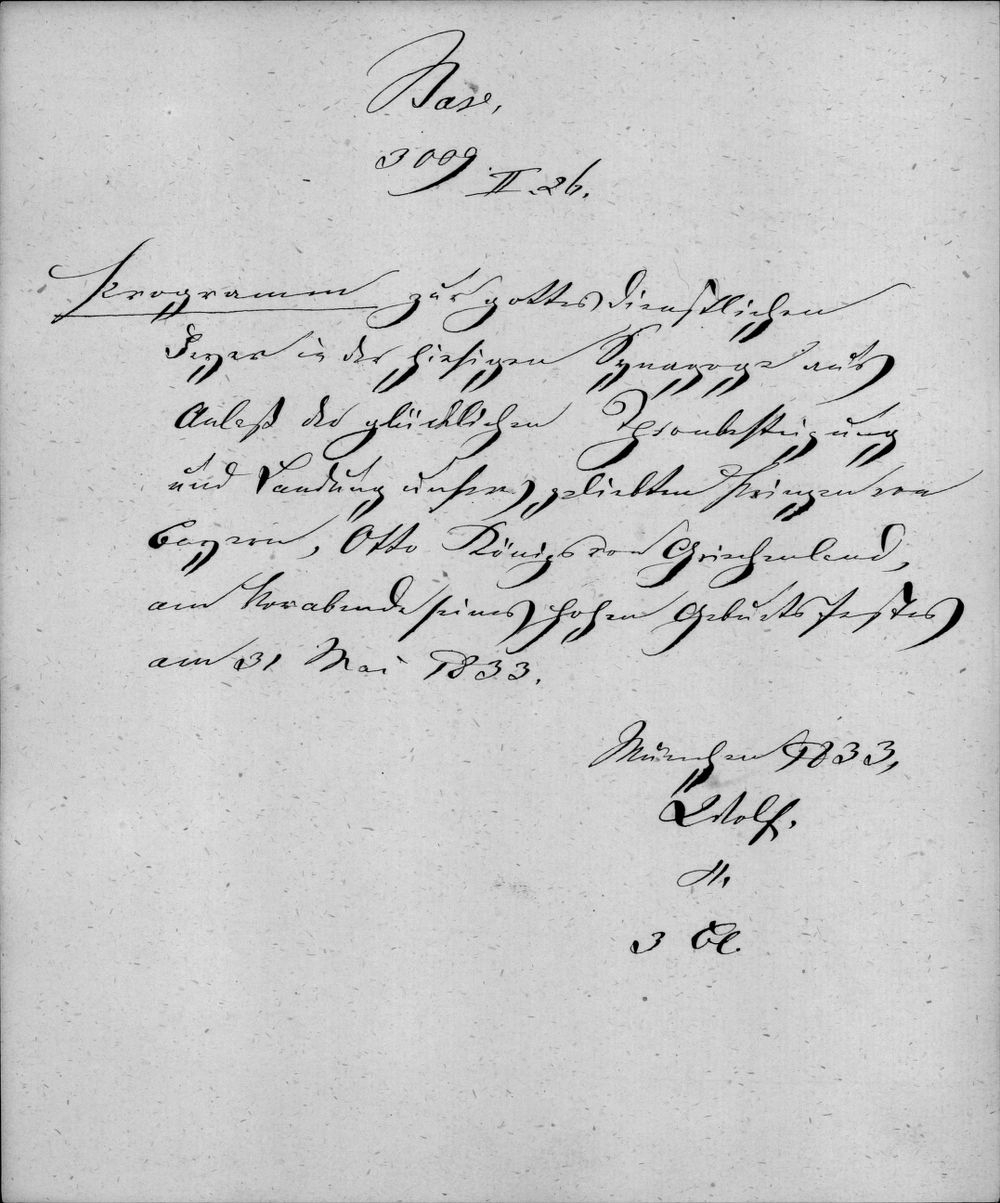 Bav.
3009
II.26.
Programm zur gottesdienstlichen
Feyer in der hiesigen Synagoge aus
Anlaß der glücklichen Thronbesteigung
und Landung unseres geliebten Prinzen von
Bayern, Otto Königs von Griechenland,
am Vorabende seines hohen Geburtsfestes
am 31 Mai 1833.
München 1833,
Wolf.
4.
3 Bl.